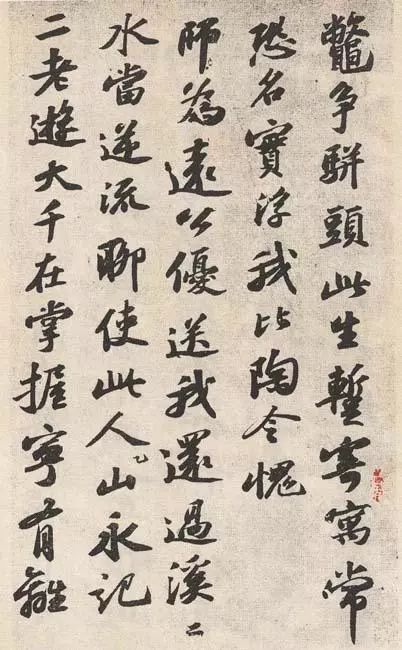 鼈争駢頭此生暫寄寓常
恐名實浮我比陶令愧
師為遠公優送我還過溪〻
水當逆流聊使此人山永記
二老遊大千在掌握寧有離